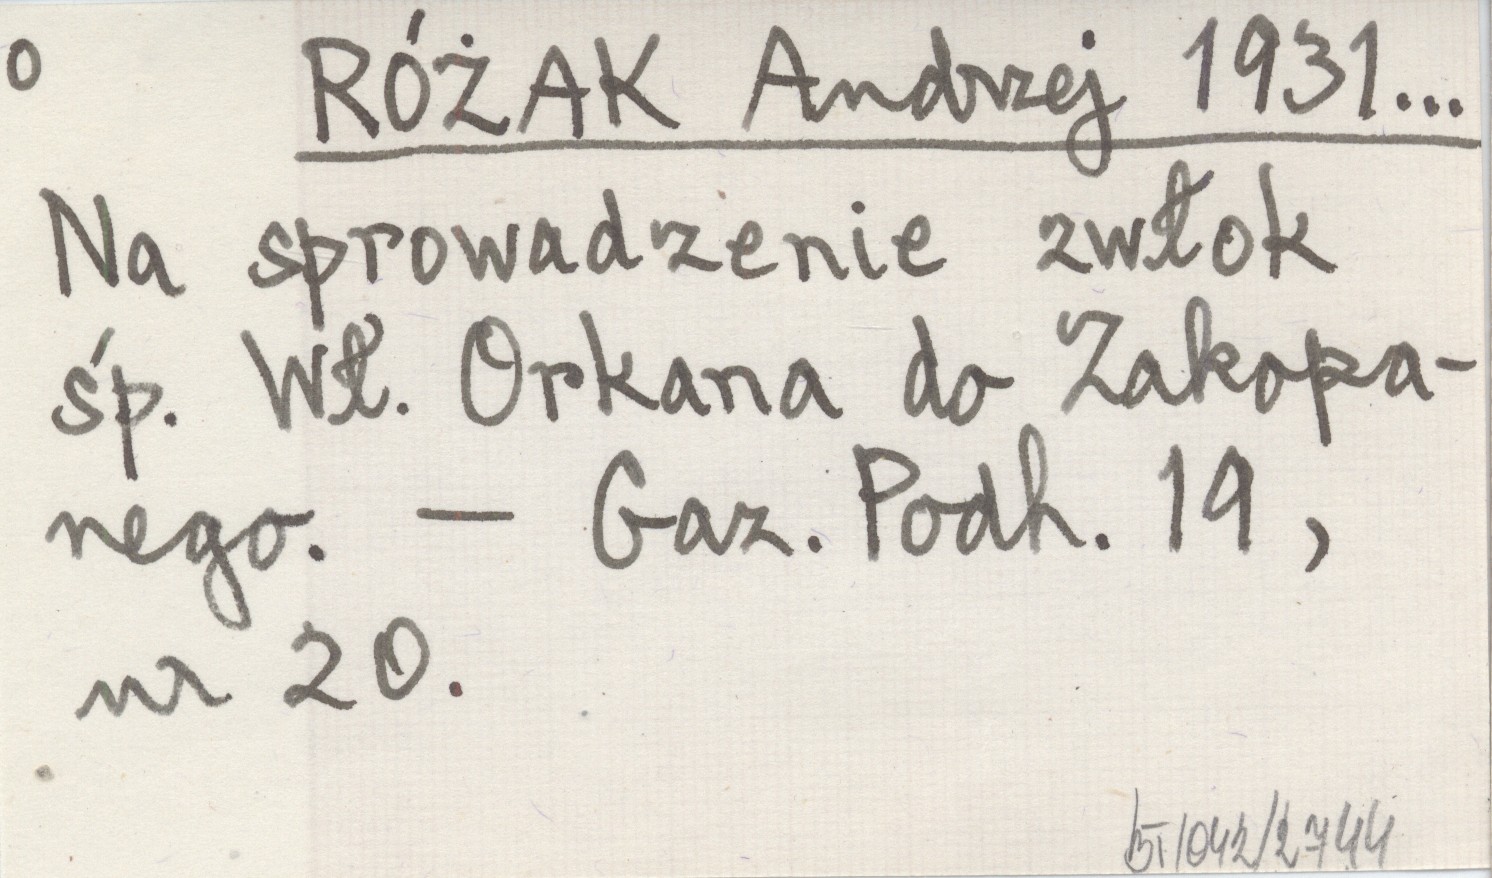 o RÓŻAK Andrzej 1931...
Na sprowadzenie zwłok
śp. Wł. Orkana do Zakopa-
nego. — Gaz. Podh. 19,
nr 20.
BT/042/2744